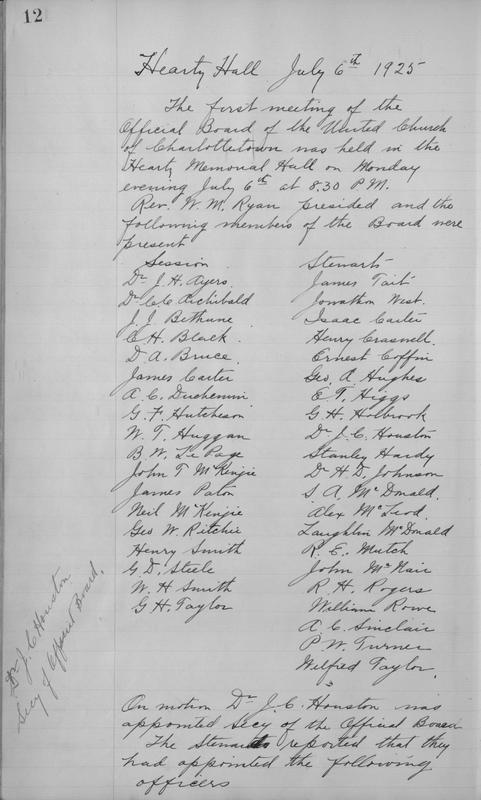 12
Hearty Hall July 6th 1925
The first meeting of the
Official Board of the United Church
of Charlottetown was held in the
Heartz Memorial Hall on Monday
evening July 6th at 8.30 P.M.
Rev. W. M. Ryan presided and the
following members of the Board were
present
Session
Dr J. H. Ayers
Dr C. C. Archibald
J. J. Bethune
E H. Black
D A. Bruce
James Carter
A. C. Duchemin
G. F. Hutcheson
W. T. Huggan
B. W. Le Page
John T McKenzie
James Paton
Neil McKenzie
Geo W. Ritchie
Henry Smith
G. D. Steele
W. H Smith
G H. Taylor
Stewarts
James Tait
Jonathon West.
Isaac Carter
Henry Craswell
Ernest Coffin
Geo. A Hughes
E T. Higgs
G. H. Holbrook
Dr J. C. Houston
Stanley Hardy
Dr H D. Johnson
S A. McDonald.
Alex McLeod.
Laughlin McDonald
R. E. Mutch
John McNair
R. H. Rogers
William Rowe
A. C. Sinclair
P. W. Turner
Wilfred Taylor.
On motion Dr J. C. Houston was
appointed Secy of the Official Board
The Stewards reported that they
had appointed the following
officers
Dr J. C Houston.
Secy of Official Board.